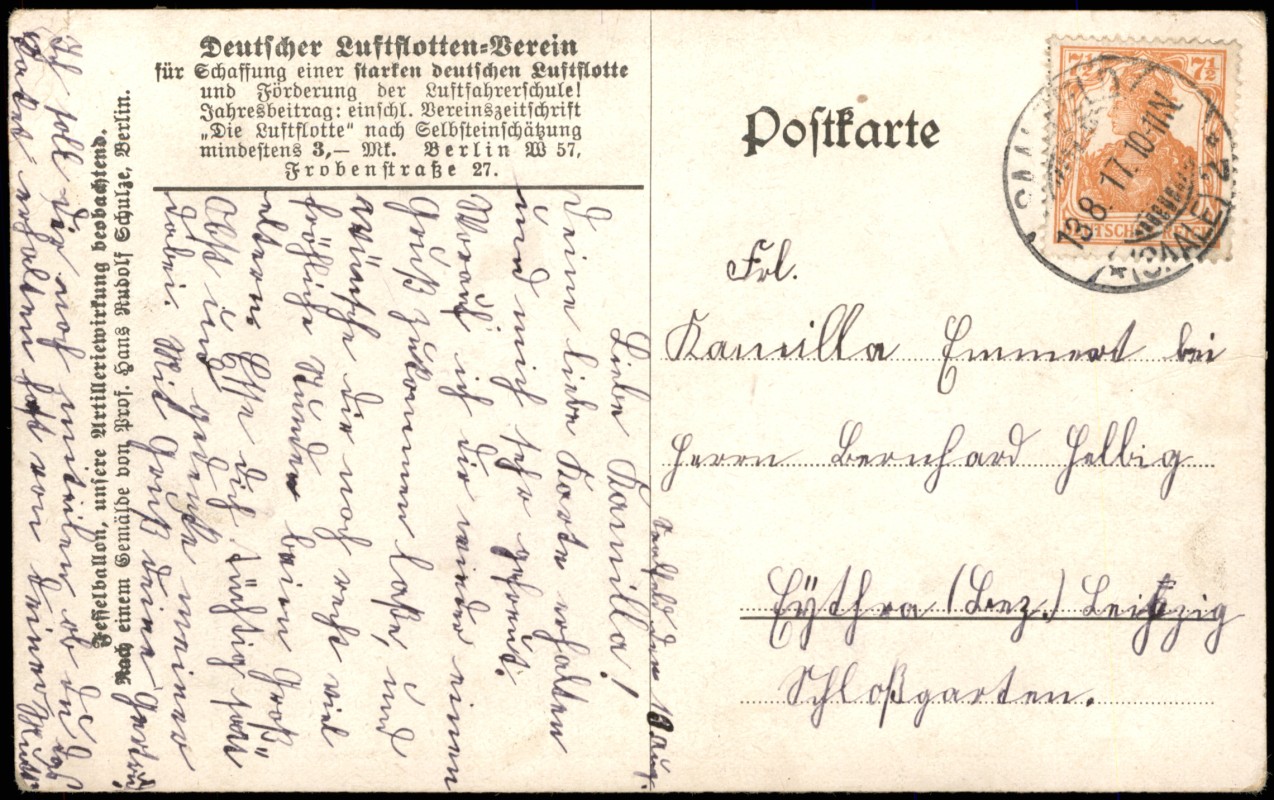 Deutscher Luftflotten-Verein
für Schaffung einer starken deutschen Luftflotte
und Förderung der Luftfahrerschule!
Jahresbeitrag: einschl. Vereinszeitschrift
„Die Luftflotte“ nach Selbsteinschätzung
mindestens 3,— Mk. Berlin W 57,
Frobenstraße 27.
Fesselballon, unsere Artilleriewirkung beobachtend.
Nach einem Gemälde von Prof. Hans Rudolf Schulze, Berlin.
Postkarte
7½ 7½
DEUTSCHES REICH
13.8.17. 10-11V.
(SAALE)
Frl.
Kamilla Emmert bei
Herrn Bernhard Helbig
Eÿthra (Bez.) Leipzig
Schloßgarten.
den 10 Aug.
Liebe Kamilla!
Deine liebe Karte erhalten
und mich sehr gefreut.
Worauf ich dir wieder einen
Gruß zukommen laße, und
wünsche dir noch recht viel
fröhliche Stunden beien Groß
eltern. Esse dich tüchtig satt
Obst und gedenke meiner
dabei. Mit Gruß deine Gertrud
Ich soll dir noch mitteilen ob du das
Packet erhalten hast von deiner Mutter